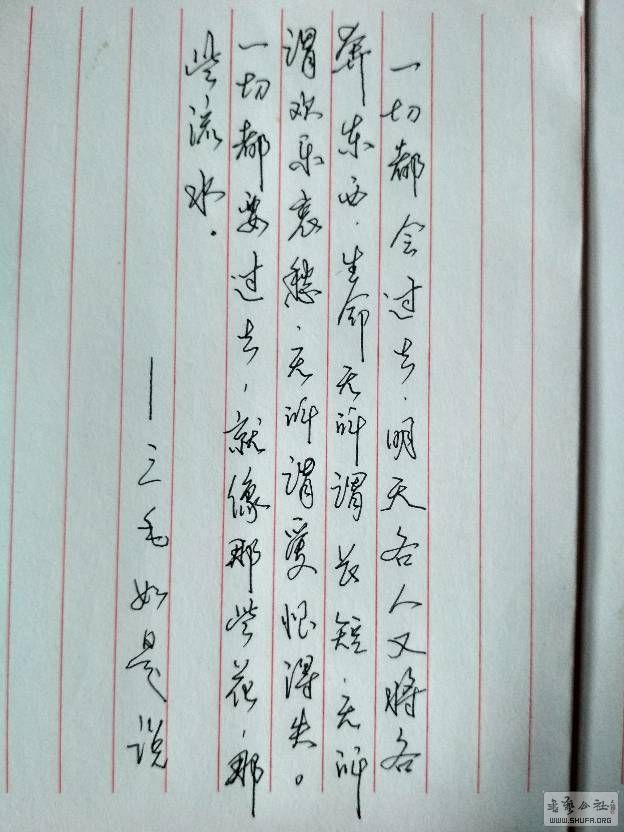 一切都会过去.明天各人又将各
奔东西.生命无所谓长短.无所
谓欢乐哀愁.无所谓爱恨得失。
一切都要过去,就像那些花,那
些流水.
——三毛如是说
书艺公社
WWW.SHUFA.ORG